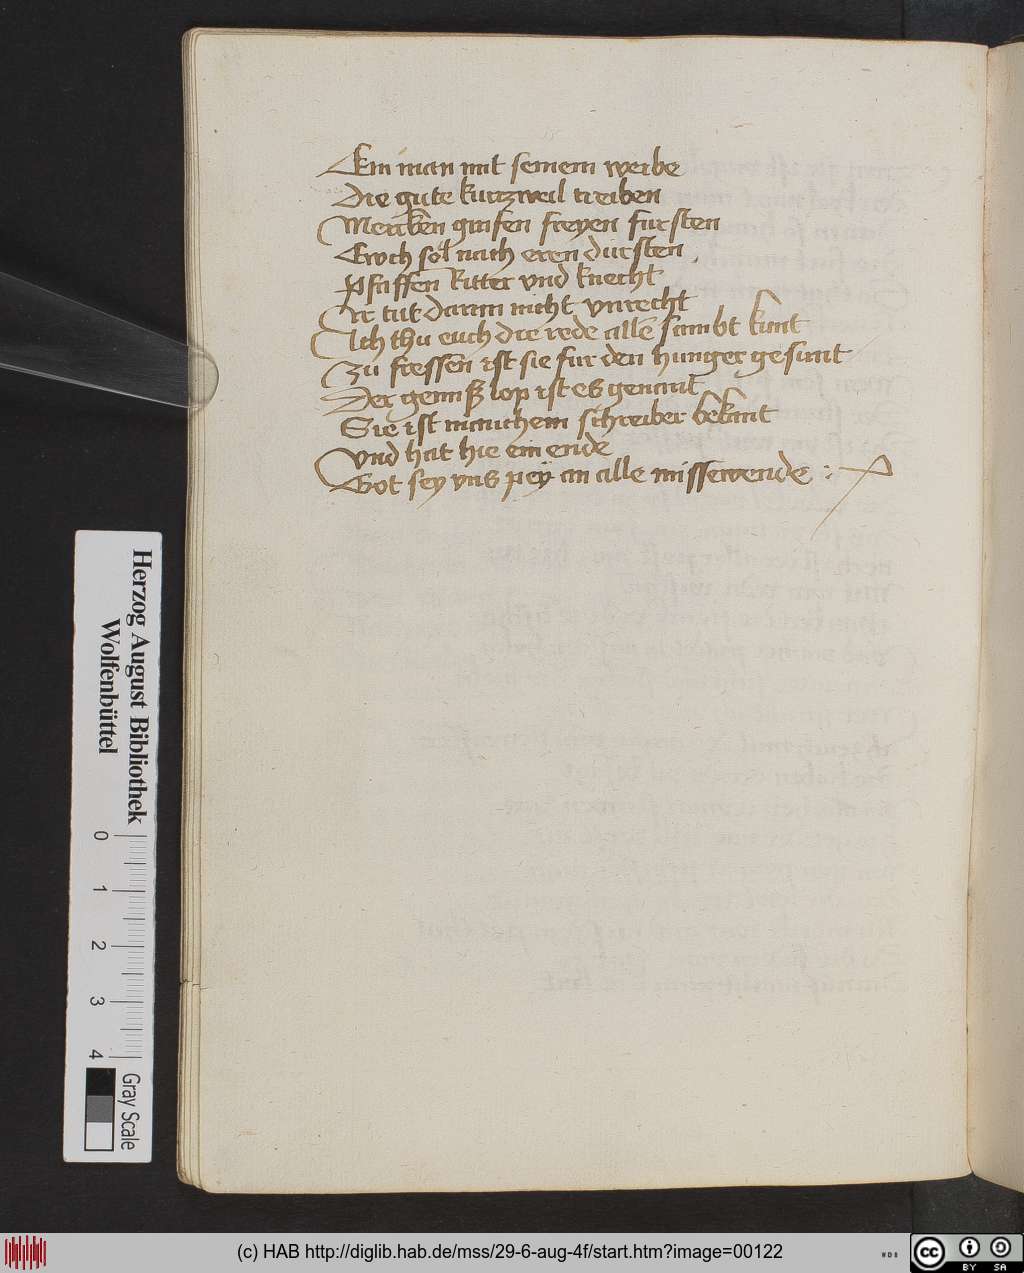 Ein man mit seinem weibe
Die gute kurtzweil treiben
Mercken grafen freyen fursten
Ewch sol nach eren dursten
Pfaffen Ritter vnd knecht
Ir tut daran nicht vnrecht
Ich thu euch die rede allen sambt kunt
Zu fressen ist sie fur den hunger gesunt
Der gennß lop ist es genant
Sie ist manichem schreiber bekant
Vnd hat hie ein ende
Got sey vns pey an alle missewende :
Herzog August Bibliothek
Wolfenbüttel
0 1 2 3 4
Gray Scale
(c) HAB http://diglib.hab.de/mss/29-6-aug-4f/start.htm?image=00122
WDB
cc BY SA